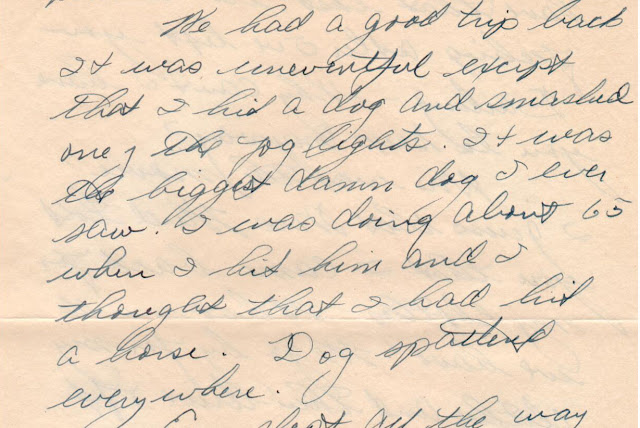 We had a good trip back
It was uneventful except
that I hid a dog and smashed
one of the fog lights. It was
the biggest damn dog I ever
saw. I was doing about 65
when I hit him and I
thought that I had hit
a horse. Dog spattered
everywhere.
slept all the way